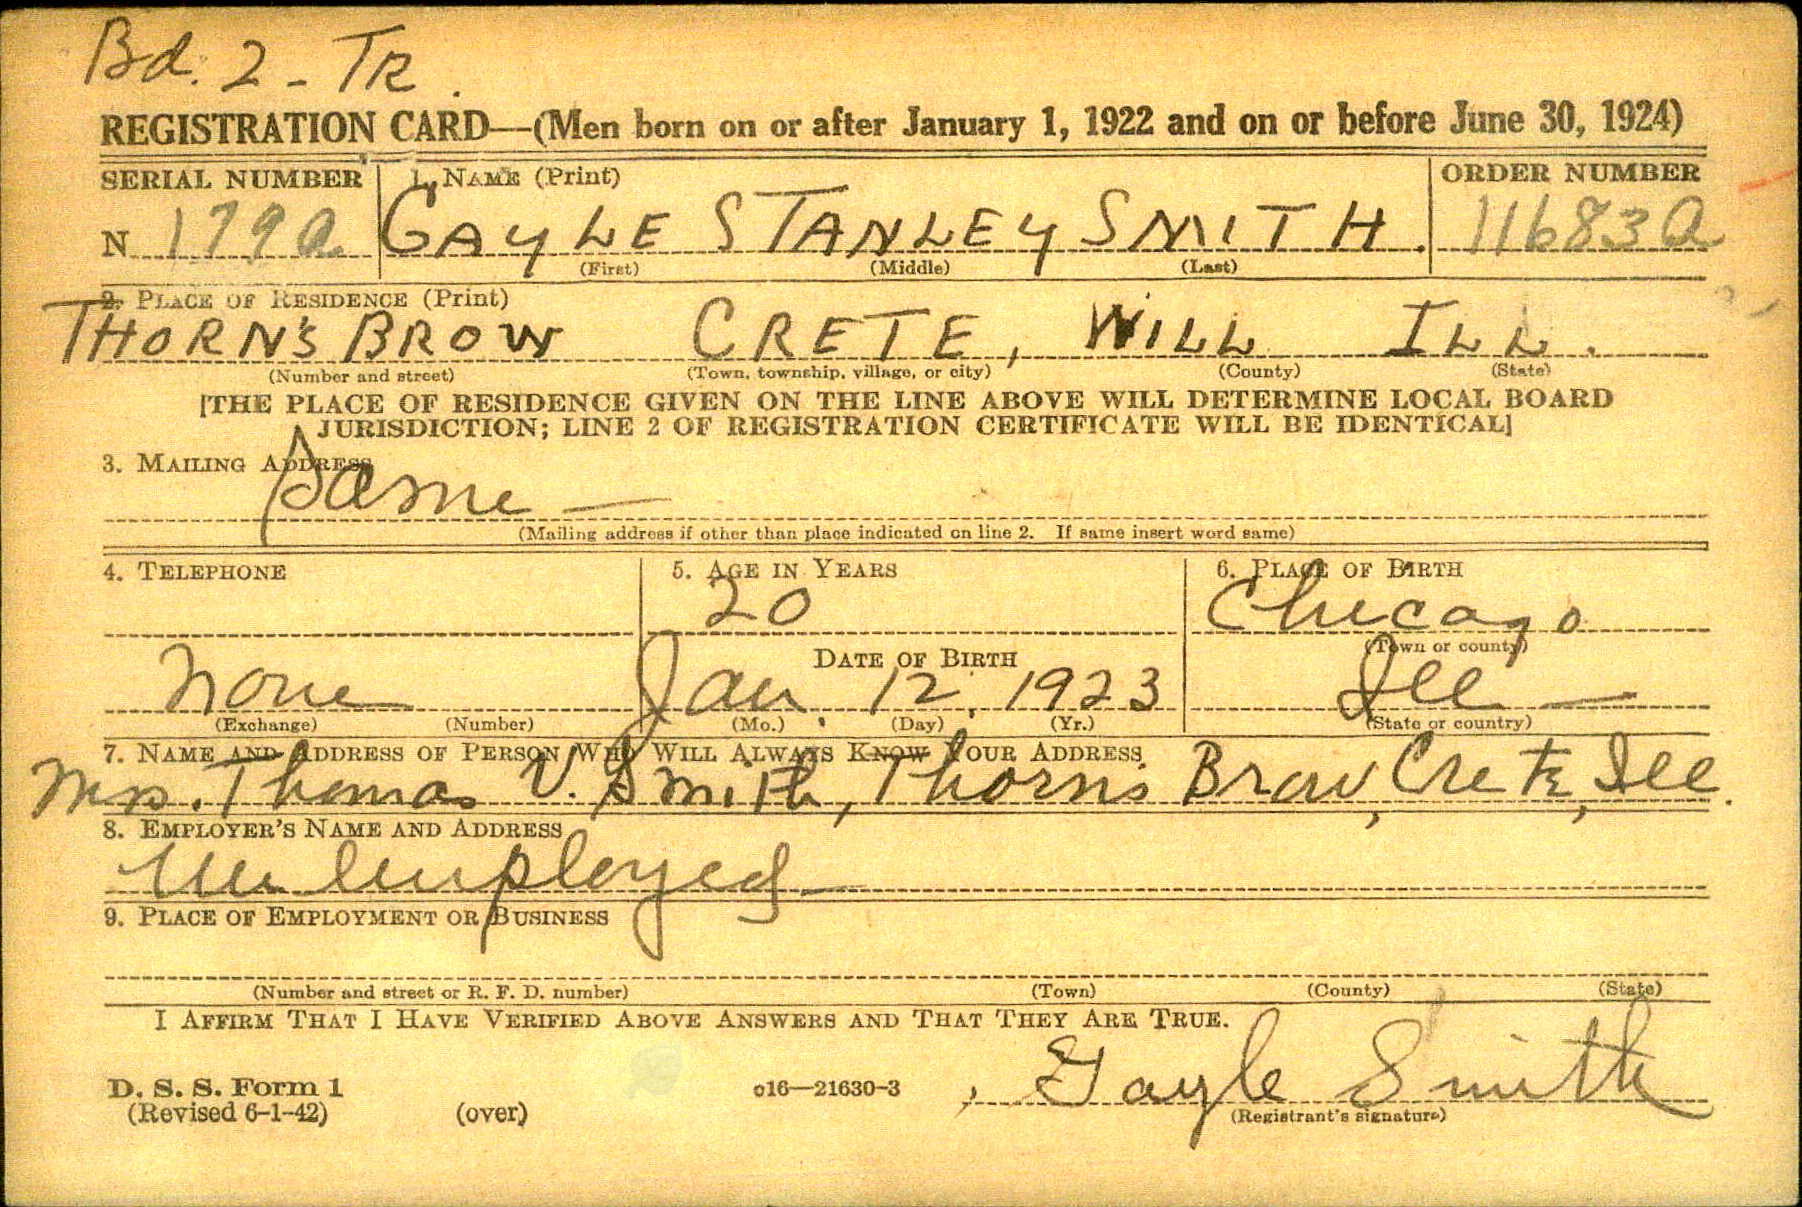 Bd. 2 - TR.
REGISTRATION CARD—(Men born on or after January 1, 1922 and on or before June 30, 1924)
SERIAL NUMBER 1. NAME (Print) ORDER NUMBER
N 179a GAYLE STANLEY SMITH. 11683a
(First) (Middle) (Last)
2. PLACE OF RESIDENCE (Print)
THORN'S BROW CRETE, WILL ILL.
(Number and street) (Town, township, village, or city) (County) (State)
[THE PLACE OF RESIDENCE GIVEN ON THE LINE ABOVE WILL DETERMINE LOCAL BOARD
JURISDICTION; LINE 2 OF REGISTRATION CERTIFICATE WILL BE IDENTICAL]
3. MAILING ADDRESS
Same —
(Mailing address if other than place indicated on line 2. If same insert word same)
4. TELEPHONE 5. AGE IN YEARS 6. PLACE OF BIRTH
20 Chicago
DATE OF BIRTH (Town or county)
None Jan. 12, 1923 Ill —
(Exchange) (Number) (Mo.) (Day) (Yr.) (State or country)
7. NAME AND ADDRESS OF PERSON WHO WILL ALWAYS KNOW YOUR ADDRESS
Mrs. Thomas V. Smith, Thorn's Brow, Crete, Ill.
8. EMPLOYER'S NAME AND ADDRESS
Unemployed —
9. PLACE OF EMPLOYMENT OR BUSINESS
(Number and street or R. F. D. number) (Town) (County) (State)
I AFFIRM THAT I HAVE VERIFIED ABOVE ANSWERS AND THAT THEY ARE TRUE.
D. S. S. Form 1 c16—21630-3 Gayle Smith
(Revised 6-1-42) (over) (Registrant's signature)